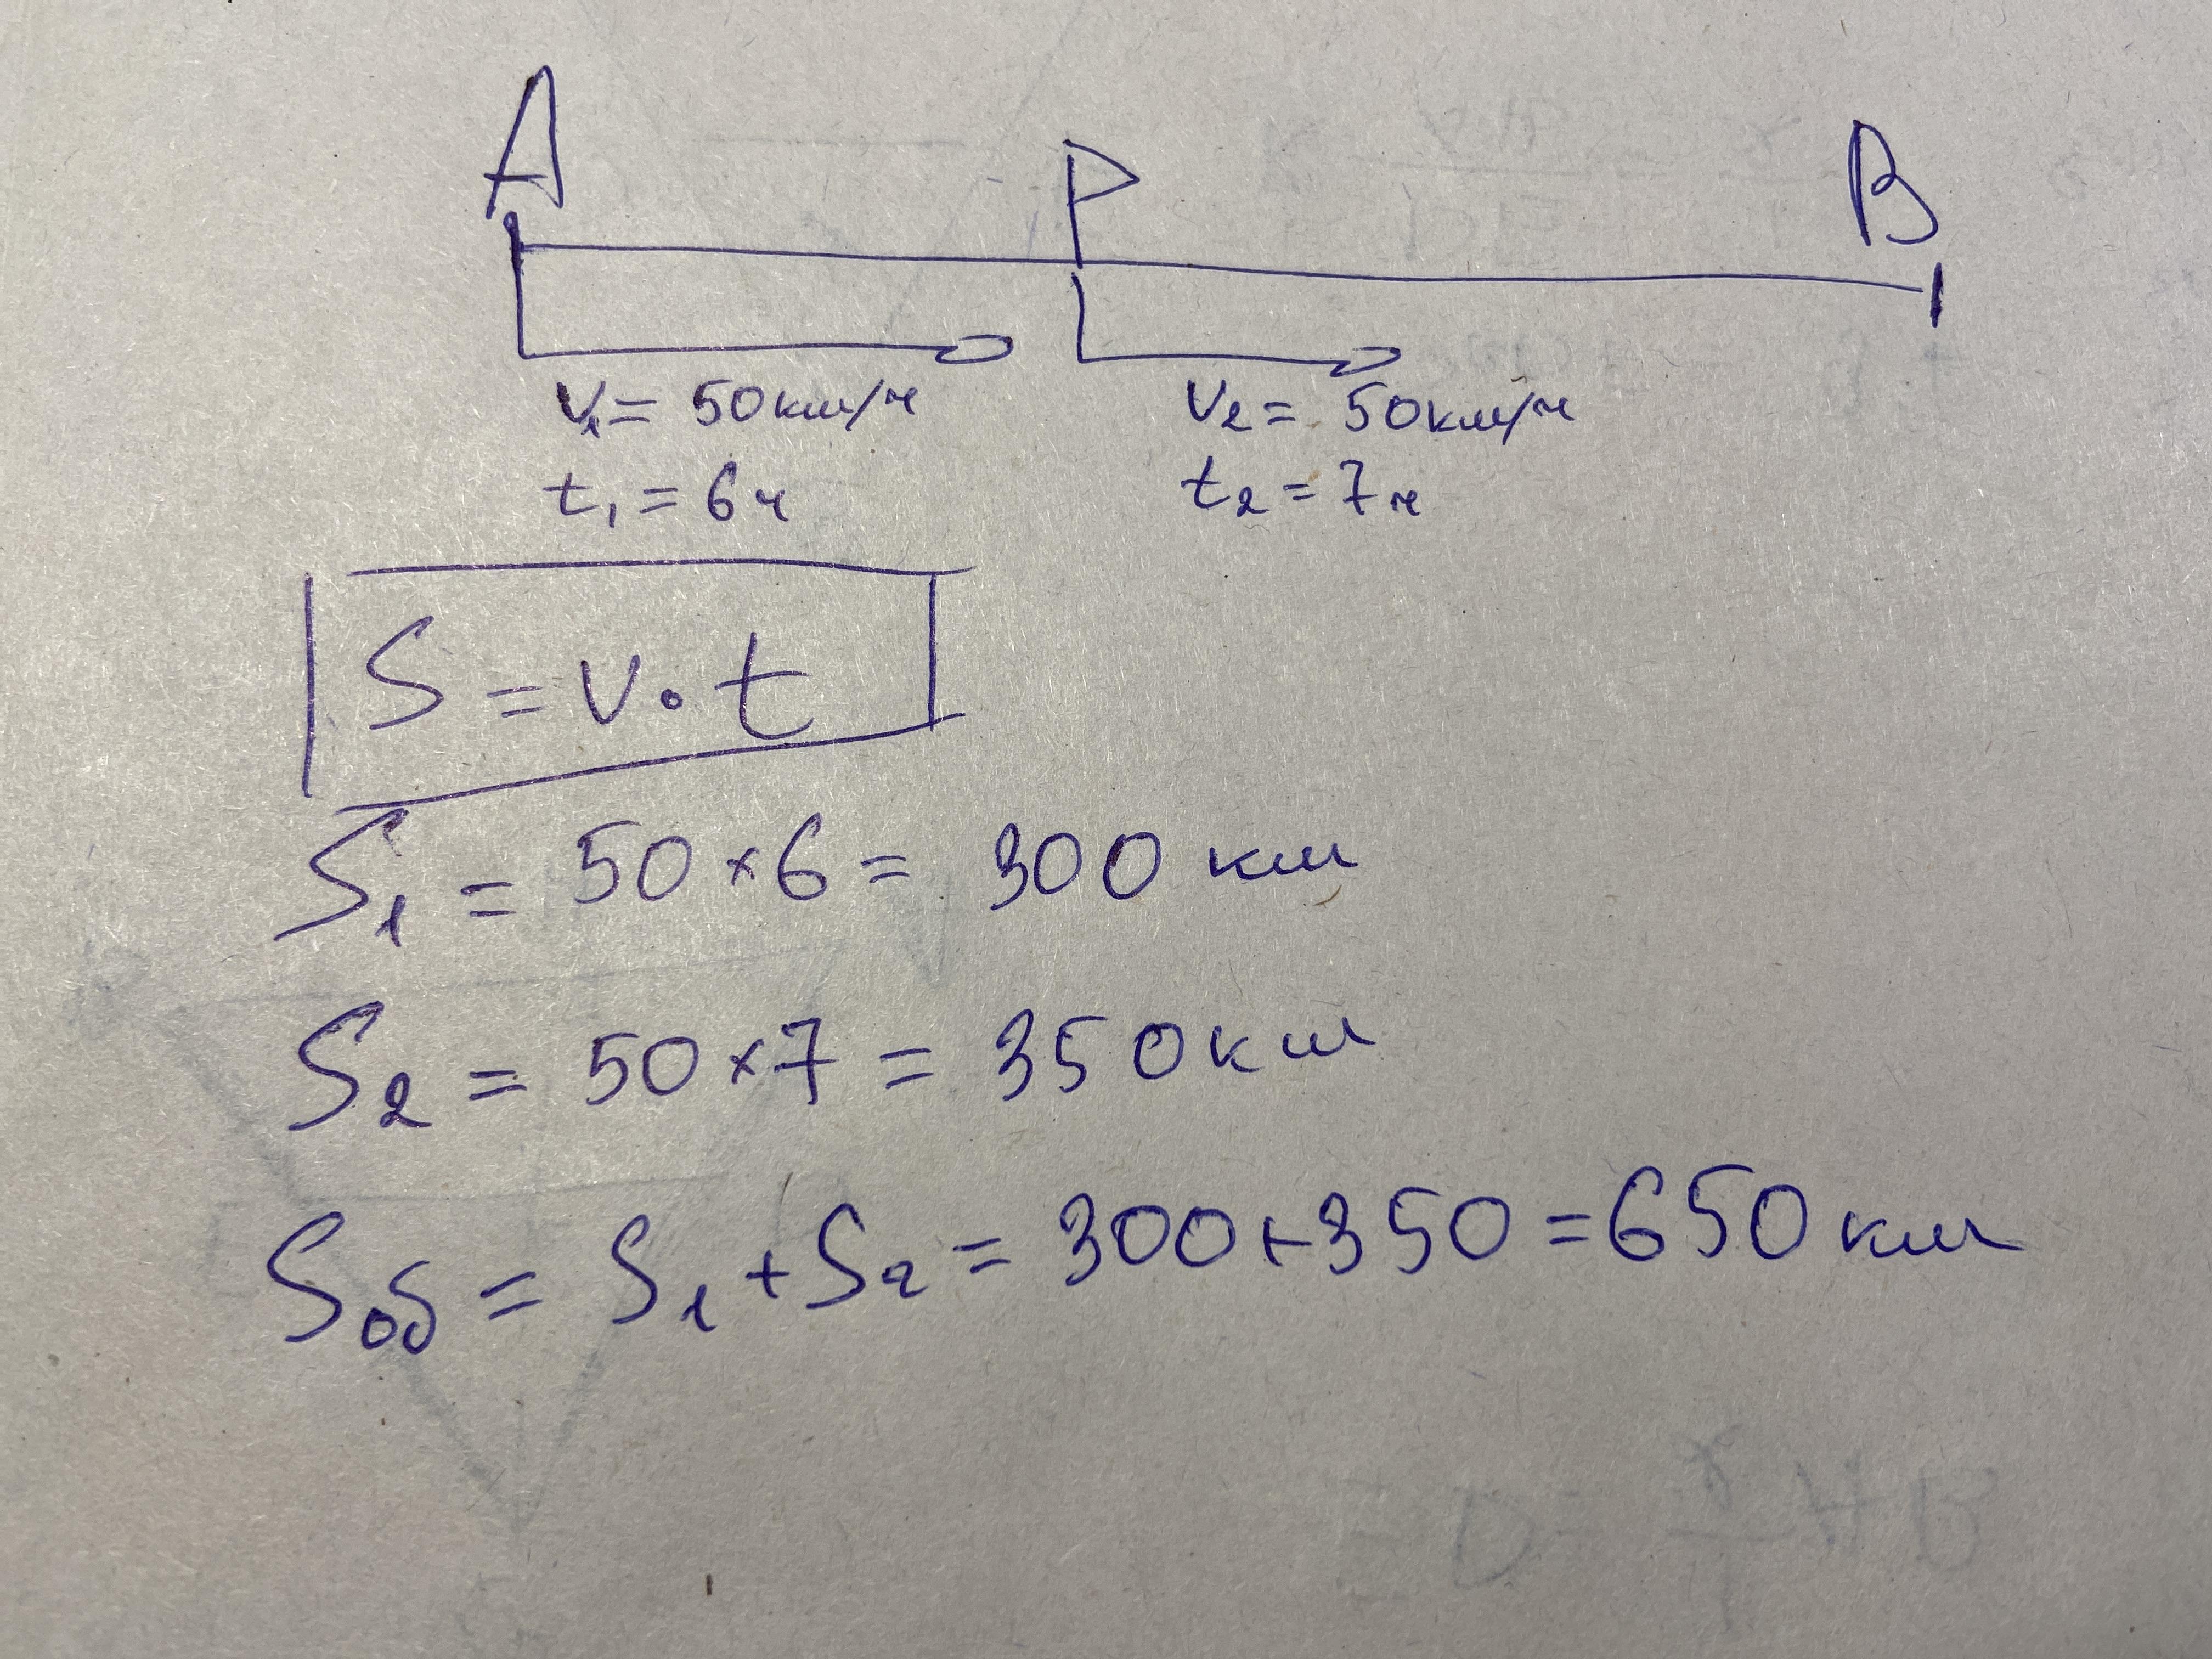 A P B
V₁ = 50км/ч V₂ = 50км/ч
t₁ = 6ч t₂ = 7ч
S = V · t
S₁ = 50 × 6 = 300 км
S₂ = 50 × 7 = 350 км
Sоб = S₁ + S₂ = 300 + 350 = 650 км